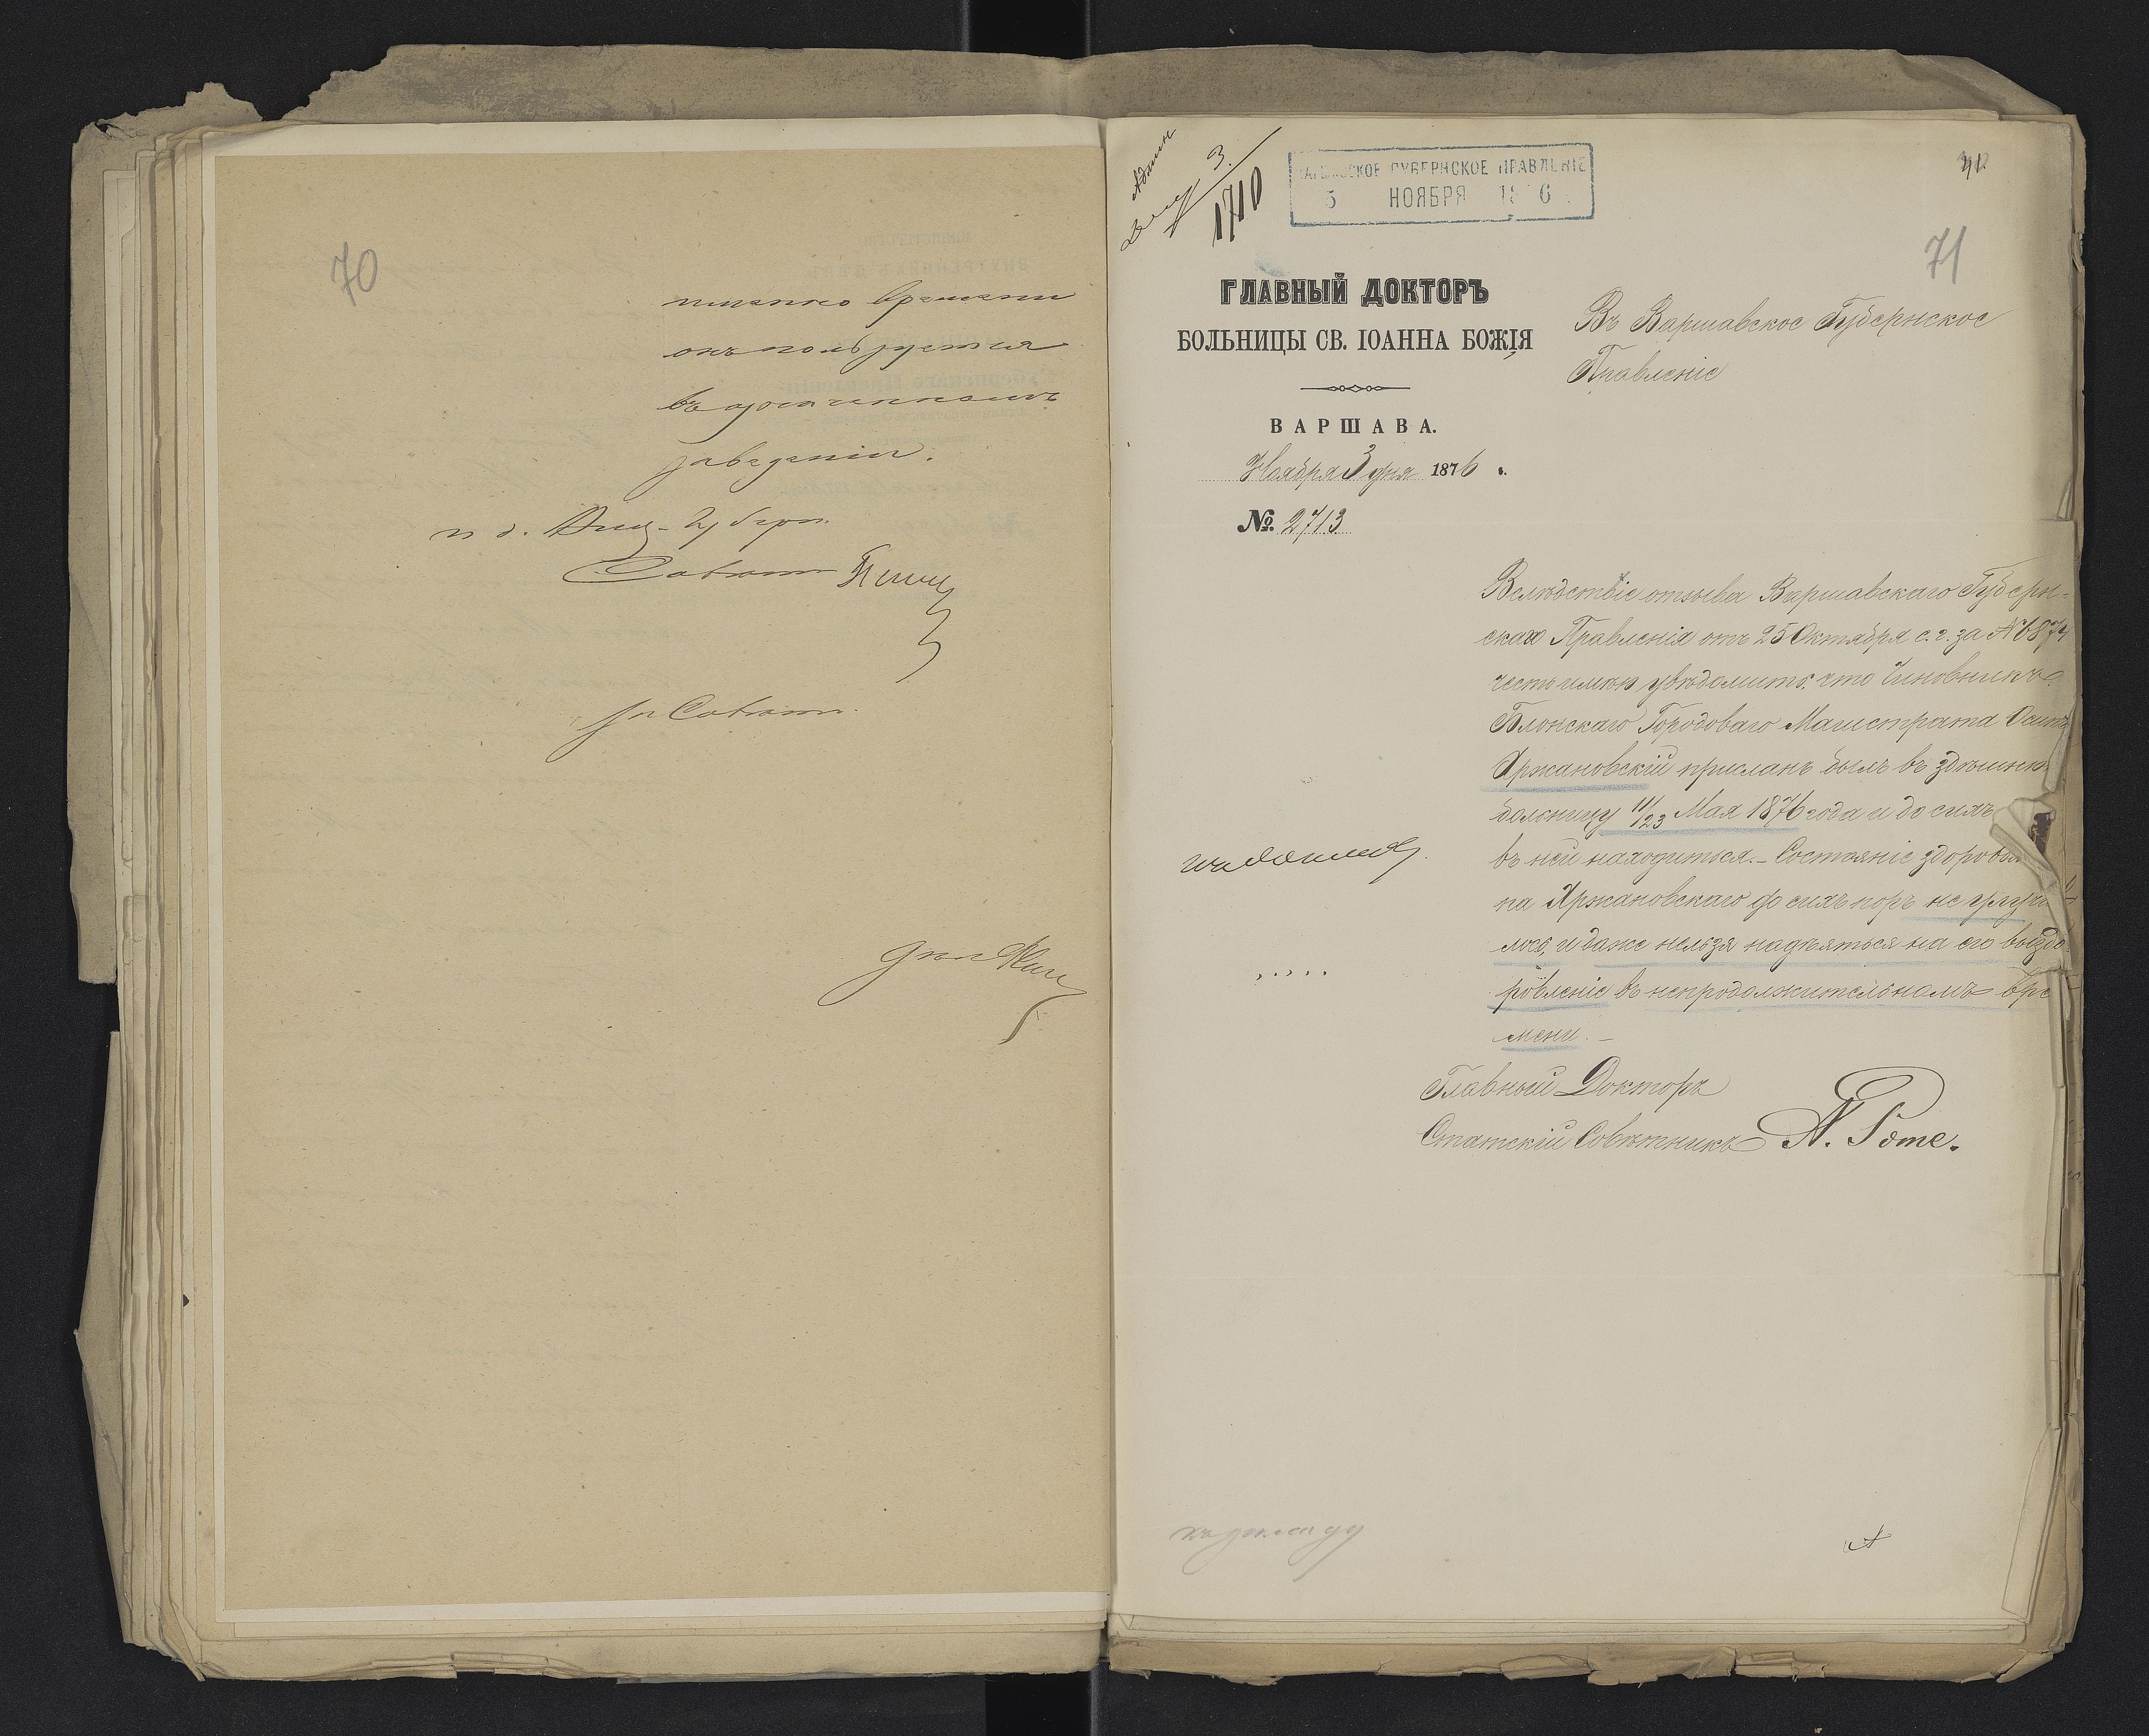 70
времени
онъ пользуется
въ означенномъ
заведеніи.
и д. Виц-Губерн.
за Совѣтн.
3.
1710
ВАРШАВСКОЕ ГУБЕРНСКОЕ ПРАВЛЕНІЕ
5 НОЯБРЯ 1876
71
ГЛАВНЫЙ ДОКТОРЪ
БОЛЬНИЦЫ СВ. ІОАННА БОЖІЯ
ВАРШАВА.
Ноября 3 дня 1876 г.
№ 2713
Въ Варшавское Губернское
Правленіе
Вслѣдствіе отзыва Варшавскаго Губерн-
скаго Правленія отъ 25 Октября с. г. за №
честь имѣю увѣдомить, что Чиновникъ
Блонскаго Городоваго Магистрата Осипъ
Хржановскій присланъ былъ въ здѣшнюю
больницу 11/23 Мая 1876 года и до сихъ
въ ней находиться.- Состояніе здоровья
на Хржановскаго до сихъ поръ не улучи
лось, и даже нельзя надѣяться на его выздо
ровленіе въ непродолжительномъ вре
мени. -
Главный Докторъ
Статскій Совѣтникъ
къ докладу